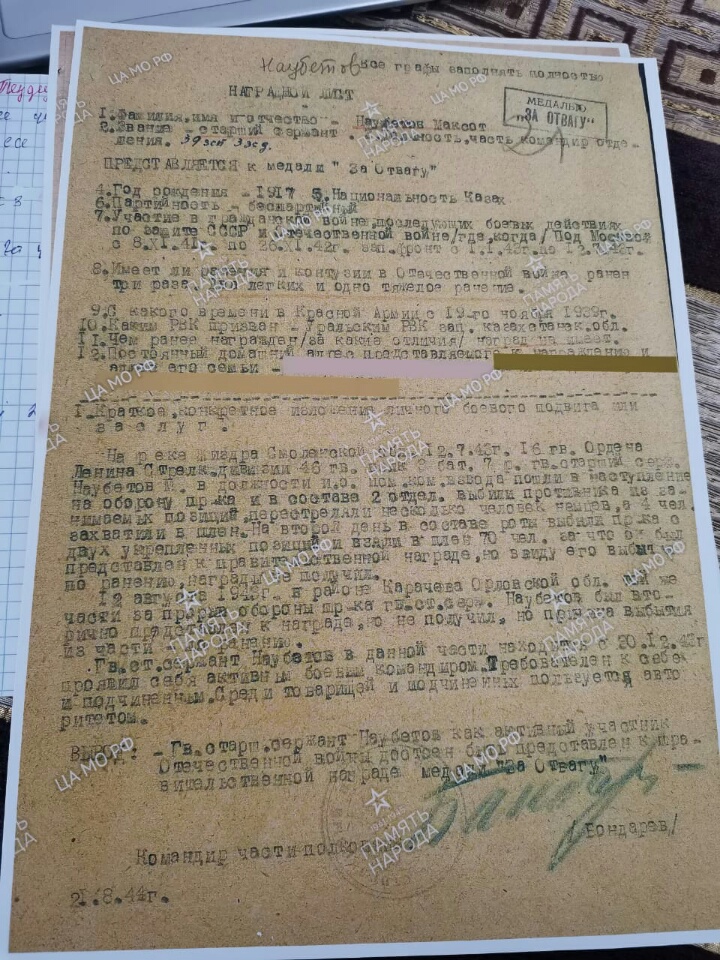 Наубетов все графы заполнять полностью
НАГРАДНОЙ ЛИСТ
МЕДАЛЬЮ
"ЗА ОТВАГУ"
1.Фамилия,имя и отчество - Наубетов Максот
2.Звание - старший сержант должность,часть командир отде-
ления. 39 зсп 3 зсд.
ПРЕДСТАВЛЯЕТСЯ к медали "За Отвагу"
4.Год рождения - 1917 5.Национальность Казах
6.Партийность - беспартийный
7.Участие в гражданской войне,последующих боевых действиях
по защите СССР и отечественной войне/где,когда/ Под Москвой
с 8.XI.41г. по 26.XI.42г. зап.фронт с 1.1.43г. по
8.Имеет ли ранения и контузии в Отечественной войне ранен
три раза. Два легких и одно тяжелое ранение.
9.С какого времени в Красной Армии с 19-го ноября 1939г.
10.Каким РВК призван - Уральским РВК зап. казахстанск.обл.
11.Чем ранее награжден/за какие отличия/ наград не имеет.
12.Постоянный домашний адрес представляемого к награждению и
адрес его семьи -
1.Краткое,конкретное изложение личного боевого подвига или
заслуг.
На реке Жиздра Смоленской обл. 12.7.43г. 16 гв. Ордена
Ленина Стрелк.дивизии 46 гв. полк 2 бат. 7 р. гв.старший серж.
Наубетов М. в должности и.о. пом.ком.взвода пошли в наступление
на оборону пр-ка и в составе 2 отдел. выбили противника из за-
нимаемых позиций,перестреляли несколько человек немцев,а 4 чел.
захватили в плен.На второй день в составе роты выбили пр-ка с
двух укрепленных позиций и взяли в плен 70 чел. за что он был
представлен к правительственной награде,но ввиду его выбытия
по ранению,награды не получил.
12 августа 1943г. в районе Карачева Орловской обл. той же
части за прорыв обороны пр-ка гв.ст.серж. Наубетов был вто-
рично представлен к награде,но не получил, по причине выбытия
из части по ранению.
Гв.ст.сержант Наубетов в данной части находится с 20.12.43г
проявил себя активным боевым командиром.Требователен к себе
и подчиненным.Среди товарищей и подчиненных пользуется авто
ритетом.
ВЫВОД: - Гв.старш.сержант Наубетов как активный участник
Отечественной войны достоен быть представлен к пра-
вительственной награде медалью "За Отвагу"
Командир части /Бондарев/
21.8.44г.
ЦА МО РФ
ПАМЯТЬ НАРОДА